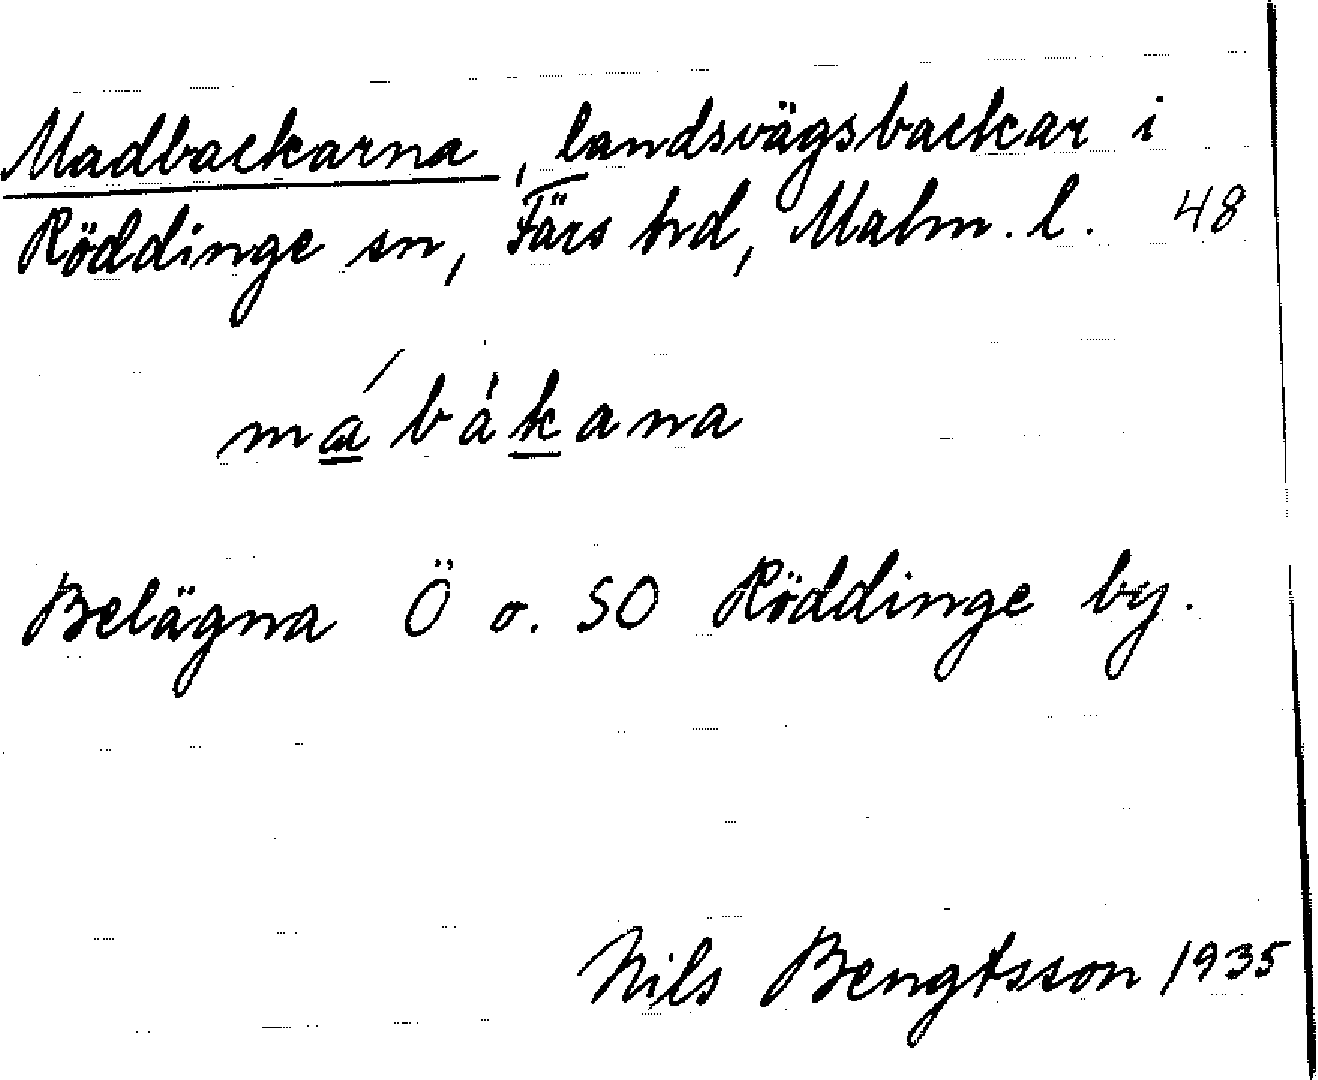 Madbackarna, landsvägsbackar i
Röddinge sn, Färs hd, Malm. l. 48
má̱bàḵana
Belägna Ö o. SO Röddinge by.
Nils Bengtsson 1935